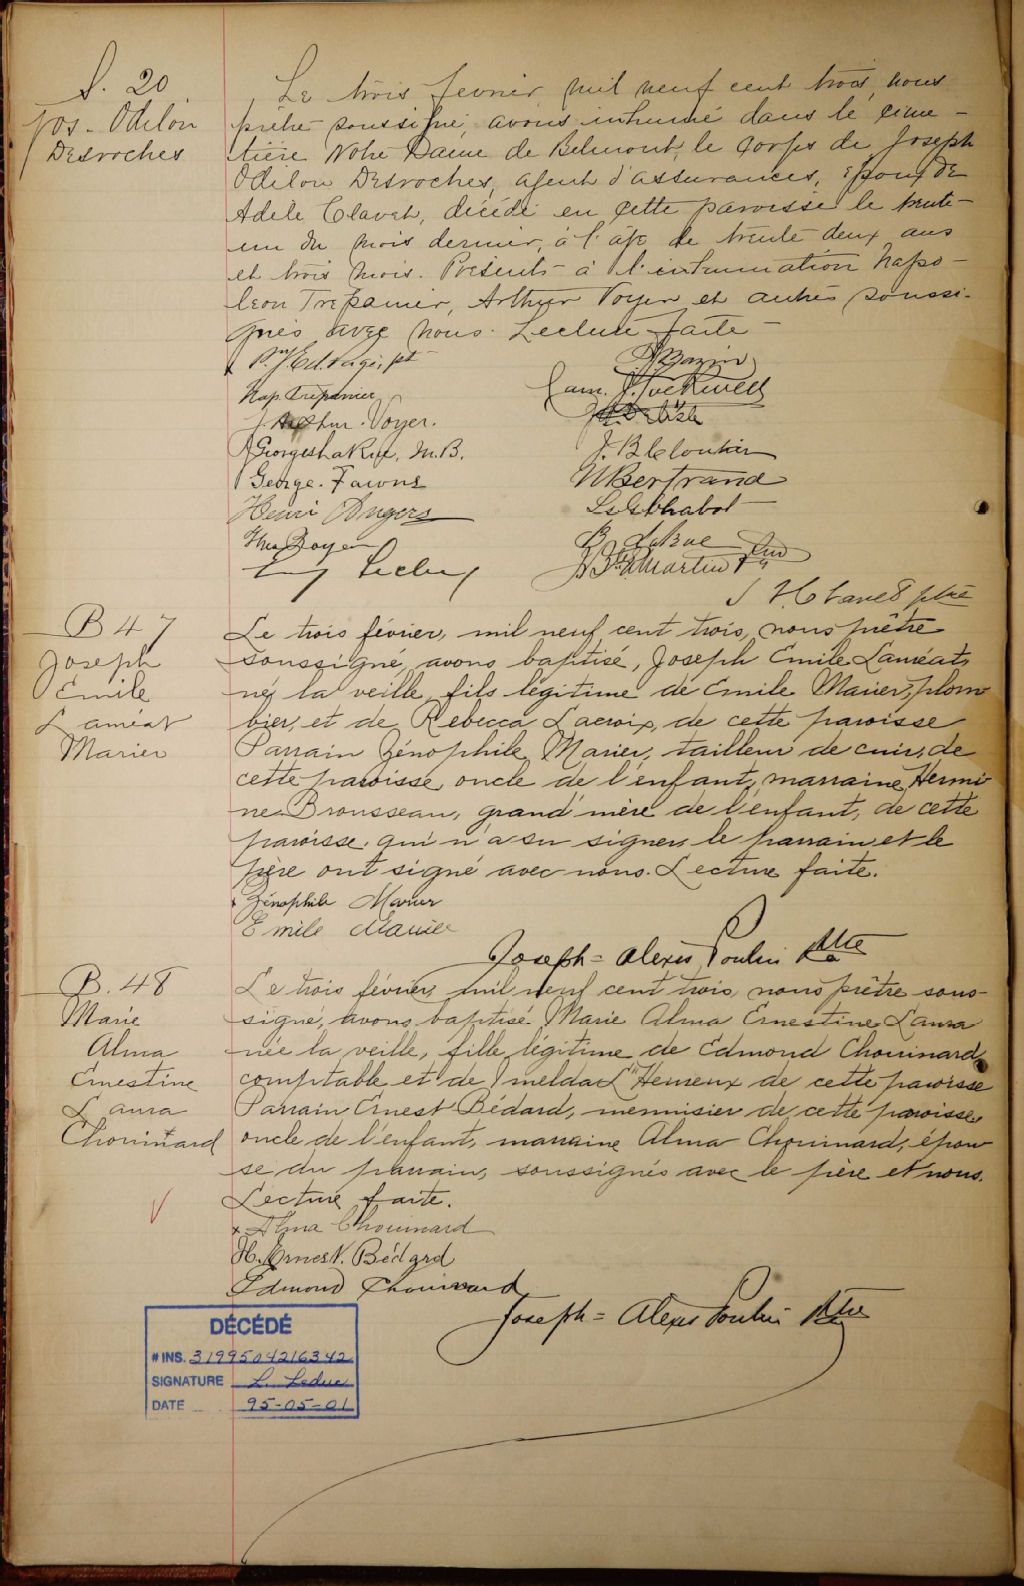 S. 20
Jos. Odilon
Desroches
Le trois fevrier mil neuf cent trois, nous
prêtre soussigné, avons inhumé dans le cime-
tière Notre Dame de Belmont, le corps de Joseph
Odilon Desroches, agent d'assurances, époux de
Adele Clavet, décédé en cette paroisse le trente-
un du mois dernier, à l'âge de trente deux ans
et trois mois. Présents à l'inhumation Napo-
leon Trepanier, Arthur Voyer et autres soussi-
gnés avec nous. Lecture faite
Nap Trepanier
J. Arthur Voyer.
Georges LaRue, M.B.
George. Fawns
Henri Angers
Leclerc
Bazin
J. Rockwell
Delisle
J. B Cloutier
Bertrand
Chabot
LaRue
Martin
H. Clavet ptre
B 47
Joseph
Emile
Lauréat
Marier
Le trois février, mil neuf cent trois, nous prêtre
soussigné, avons baptisé, Joseph Emile Lauréat,
né, la veille, fils légitime de Emile Marier, plom
bier, et de Rebecca Lacroix, de cette paroisse
Parrain Zénophile Marier, tailleur de cuir, de
cette paroisse, oncle de l'enfant, marraine Hermi
ne Brousseau, grand'mère de l'enfant, de cette
paroisse. qui n'a su signer, le parrain et le
père ont signé avec nous. Lecture faite.
x Zénophile Marier
Emile Marier
Joseph = Alexis Poulin Ptre
B. 48
Marie
Alma
Ernestine
Laura
Chouinard
Le trois février, mil neuf cent trois, nous prêtre sous-
signé, avons baptisé Marie Alma Ernestine Laura
née la veille, fille légitime de Edmond Chouinard,
comptable et de Imelda L'Heureux de cette paroisse
Parrain Ernest Bédard, menuisier de cette paroisse,
oncle de l'enfant, marraine Alma Chouinard, épou
se du parrain, soussignés avec le père et nous.
Lecture faite.
x Alma Chouinard
H. Ernest. Bédard
Edmond Chouinard
Joseph = Alexis Poulin Ptre
DÉCÉDÉ
# INS. 3199504216342
SIGNATURE L. Leduc
DATE 95-05-01